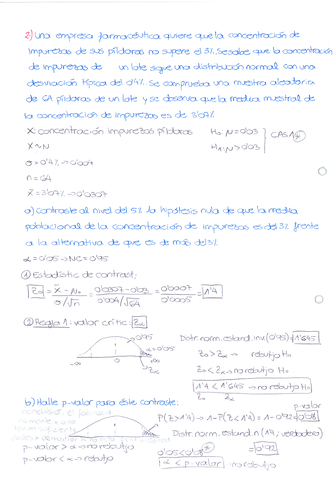 2) Una empresa farmacéutica quiere que la concentración de
impurezas de sus píldoras no supere el 3%. Se sabe que la concentración
de impurezas de un lote sigue una distribución normal con una
desviación típica del 0'4%. Se comprueba una muestra aleatoria
de 64 píldoras de un lote y se observa que la media muestral de
la concentración de impurezas es de 3'07%.
X: concentración impurezas píldoras
H0: N=0'03
X~N
H1: N>0'03
CASO
σ=0'4% → 0'004
n=64
x̄=3'07% → 0'0307
a) Contraste al nivel del 5% la hipótesis nula de que la media
poblacional de la concentración de impurezas es del 3% frente
a la alternativa de que es de más del 3%
α=0'05 → NC=0'95
① Estadístico de contraste:
Z0 = x̄-N0 / σ/√n = 0'0307-0'03 / 0'004/√64 = 0'0007 / 0'0005 = 1'4
② Regla 1: valor crítico: Zα
0'95
α=0'05
Distr.norm.estand.inv(0'95) = 1'645
Z0 > Zα → rechazo H0
Z0 < Zα → no rechazo H0
1'4 < 1'645 → no rechazo H0
Z0 Zα
b) Halle p-valor para este contraste:
p-valor
P(Z>1'4) → 1-P(Z<1'4) = 1-0'92 = 0'08
Distr.norm.estand.n (1'4; verdadero)
= 0'92
p-valor > α → no rechazo
0'05 < 0'08
p-valor < α → rechazo
α < p-valor → no rechazo